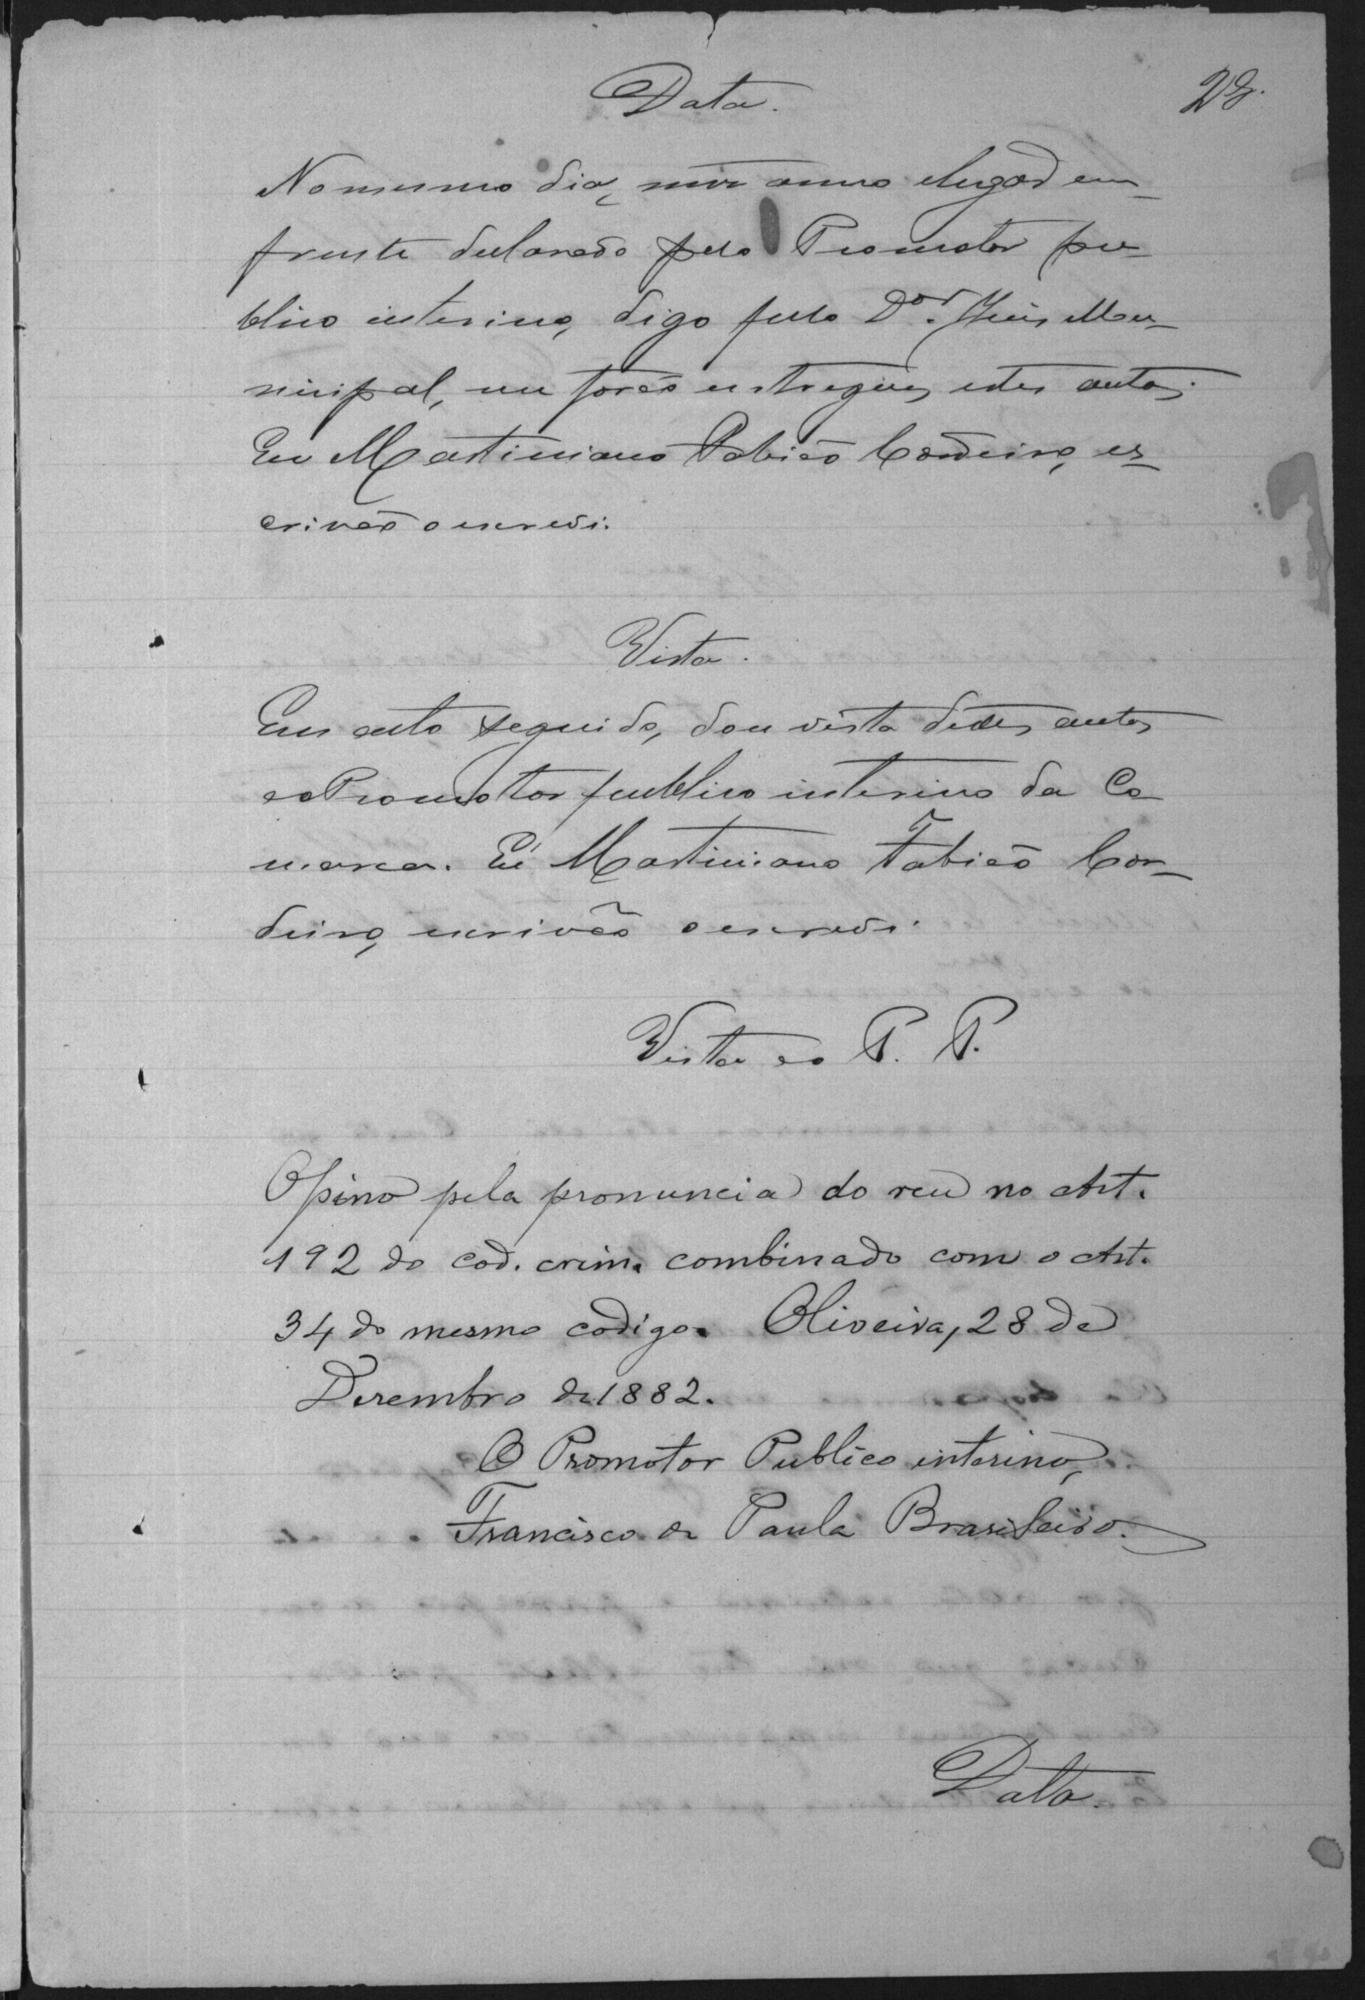 Data.
28.
No mesmo dia, mez anno e lugar em
frente declarado pelo Promotor pu-
blico interino, digo pello Dor. Juis Mu-
nicipal, me forão entregues estes autos.
Eu Martiniano Fabião Cordeiro, es-
crivão o escrevi.
Vista.
Em acto seguido, dou vista destes autos
ao Promotor publico interino da Co
marca. Eu Martiniano Fabião Cor-
deiro, escrivão o escrevi.
Vista ao P. P.
Opino pela pronuncia do reu no Art.
192 do cod. crim. combinado com o Art.
34 do mesmo codigo. Oliveira, 28 de
Dezembro de 1882.
O Promotor Publico interino,
Francisco de Paula Brasileiro.
Data.